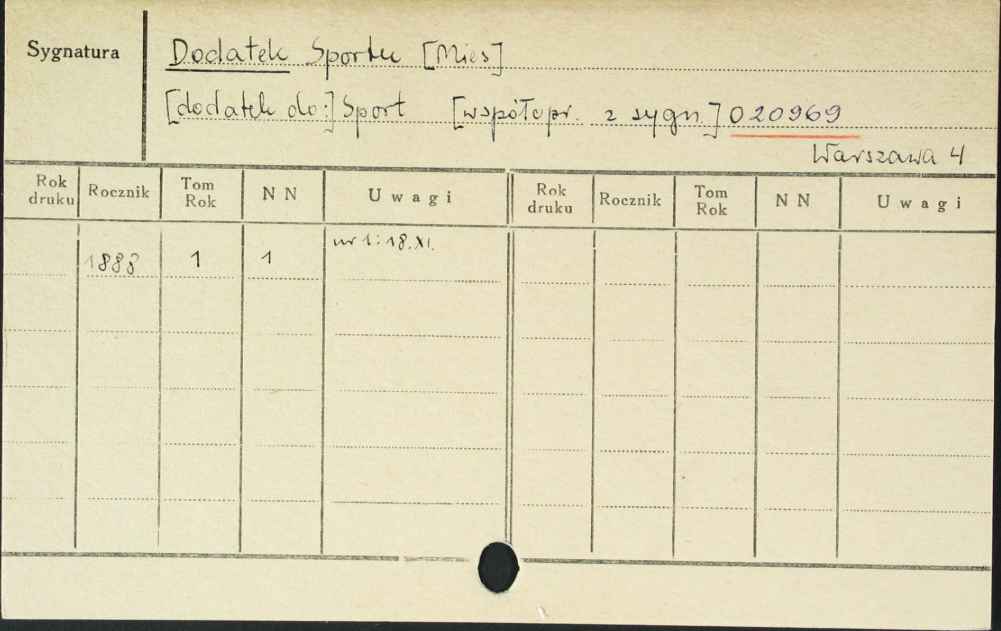 Sygnatura
Dodatek Sportu [Mies]
[dodatek do:] Sport [współopr. z sygn.] 020969
Warszawa 4
Rok druku Rocznik Tom Rok NN Uwagi Rok druku Rocznik Tom Rok NN Uwagi
1888 1 1 nr 1: 18.XI.